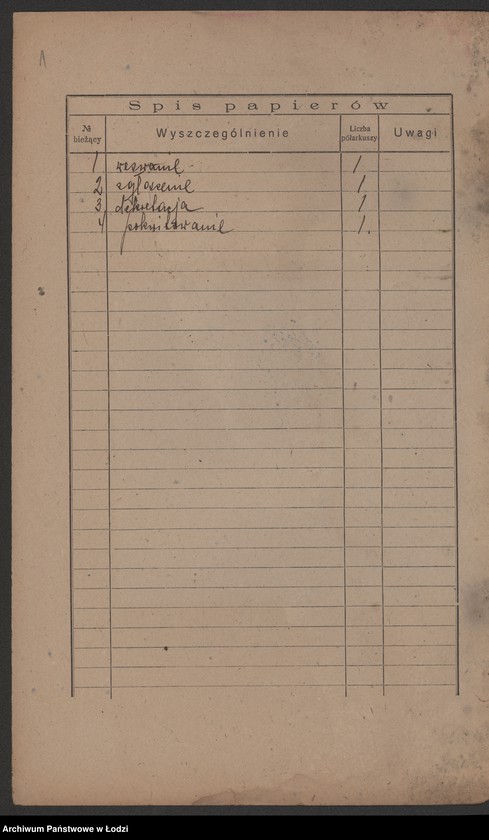 1
Spis papierów
№ bieżący Wyszczególnienie Liczba półarkuszy Uwagi
1 wezwanie 1
2 zgłoszenie 1
3 deklaracja 1
4 pokwitowanie 1.
Archiwum Państwowe w Łodzi